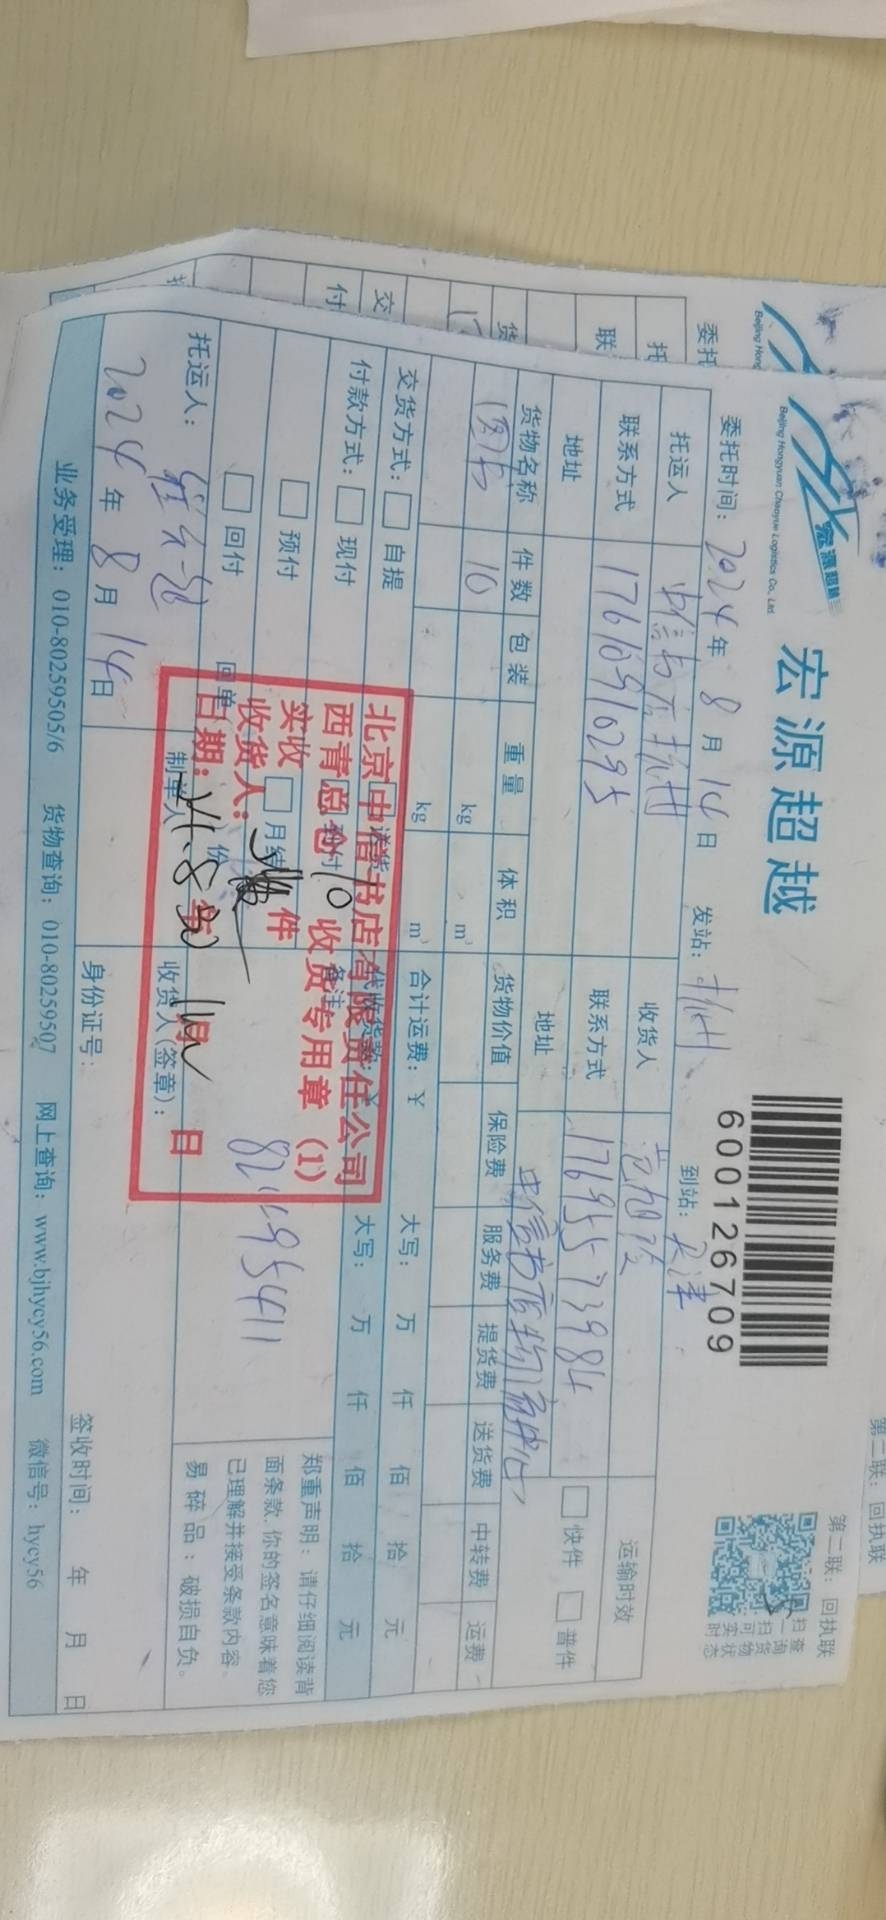 宏源超越
宏源超越
Beijing Hongyuan Chaoyue Logistics Co., Ltd.
600126709
第二联：回执联
扫一扫可实时
查询货物状态
委托时间：2024年8月14日 发站：杭州 到站：天津
托运人 中信书店杭州 收货人 运输时效
联系方式 17610910295 联系方式 17695573984 快件 普件
地址 地址 中信书店物流中心
货物名称 件数 包装 重量 体积 货物价值 保险费 服务费 提货费 送货费 中转费 运费
图书 10 kg m³
kg m³ 合计运费：￥ 大写： 万 仟 佰 拾 元
交货方式： 自提 送货 代收货款：￥ 大写： 万 仟 佰 拾 元
付款方式： 现付 到付 备注
预付 月结
回付 回单 份
8211495411
郑重声明：请仔细阅读背
面条款，你的签名意味着您
已理解并接受条款内容。
易碎品：破损自负。
托运人： 制单人 收货人（签章）：
2024年8月14日 身份证号： 签收时间： 年 月 日
业务受理：010-80259505/6 货物查询：010-80259507 网上查询：www.bjhycy56.com 微信号：hycy56
北京中信书店有限责任公司
西青总仓 收货专用章（1）
实收 10 件
收货人：
日期： 年 月 日
委托
托
联
货
交
付
Beijing Hong
第二联：回执联